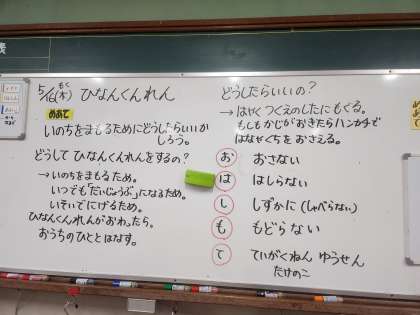 5/16(木)もく ひなんくんれん
めあて
いのちをまもるためにどうしたらいいか
しろう。
どうして ひなんくんれんをするの？
→いのちをまもるため。
いつでも「だいじょうぶ」になるため。
いそいでにげるため。
ひなんくんれんがおわったら。
おうちのひととはなす。
どうしたらいいの？
→はやく つくえのしたにもぐる。
もしもかじがおきたらハンカチで
はなやくちをおさえる。
お おさない
は はしらない
し しずかに(しゃべらない)
も もどらない
て ていがくねん ゆうせん
たけのこ
めあて